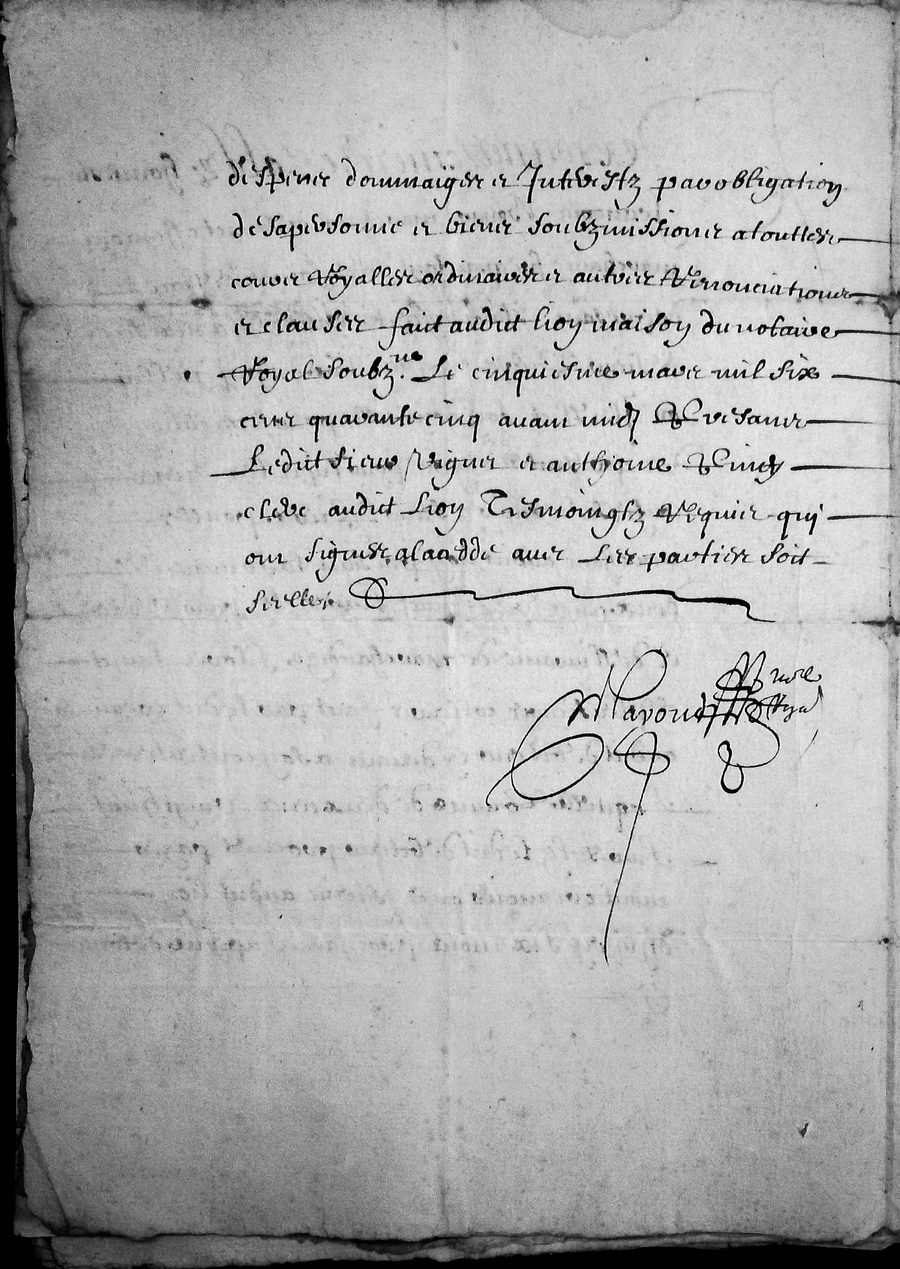 despens dommaiges et Interestz par obligation
de sa personne et biens soubzmissions a touttes
cours Royalles ordinaires et autres Renonciations
et clauses faict audict lion maison du notaire
Royal soubz.né Le cinquiesme mars mil six
cens quarante cinq avant midy Presans
Ledict sieur Vignes et anthoine
clerc audict Lion Tesmoingtz Requis qui
ont signes a la cedde avec Les parties soit
scelles
Maront nore Royal